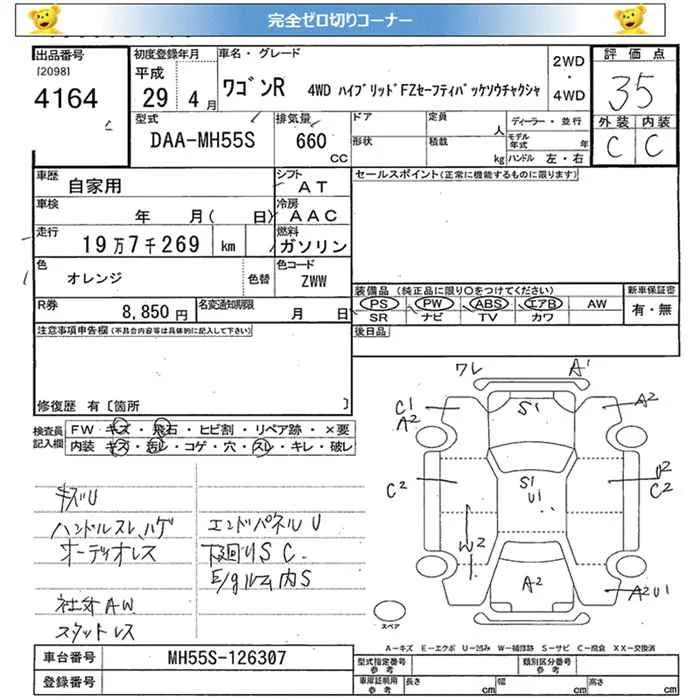 完全ゼロ切りコーナー
出品番号
[2098]
4164
初度登録年月
平成
29 4 月
車名・グレード
ワゴンR 4WD ハイブリッドFZセーフティパッケソウチャクシャ
2WD
・
4WD
評価点
35
外装 内装
C C
型式
DAA-MH55S
排気量
660
CC
ドア
形状
定員
人
積載
kg
ディーラー・並行
モデル年式 年
ハンドル 左・右
車歴
自家用
シフト
AT
車検
年 月( 日)
冷房
AAC
走行
19万7千269 km
燃料
ガソリン
色
オレンジ
色替
色コード
ZWW
R券
8,850円
名変通知期限
月 日
セールスポイント(正常に機能するものに限ります)
装備品(純正品に限り○をつけてください)
PS PW ABS エアB AW
SR ナビ TV カワ
新車保証書
有・無
後日品
注意事項申告欄(不具合内容等は具体的に記入して下さい)
修復歴 有[箇所 ]
検査員記入欄
FW キズ・飛石・ヒビ割・リペア跡・×要
内装 キズ・汚レ・コゲ・穴・スレ・キレ・破レ
キズU
ハンドルスレ、ハゲ
オーディオレス
社外AW
スタットレス
エンドパネルU
下廻りS C.
E/gルーム内S
ワレ A1
C1
A2
S1
A2
C2
S1
U1
U2
C2
W2
A2
A2 U1
スペア
A-キズ E-エクボ U-凹み W-補修跡 S-サビ C-腐食 XX-交換済
車台番号 MH55S-126307
登録番号
型式指定番号
参考
類別区分番号
参考
車庫証明用
参考
長さ cm 幅 cm 高さ cm